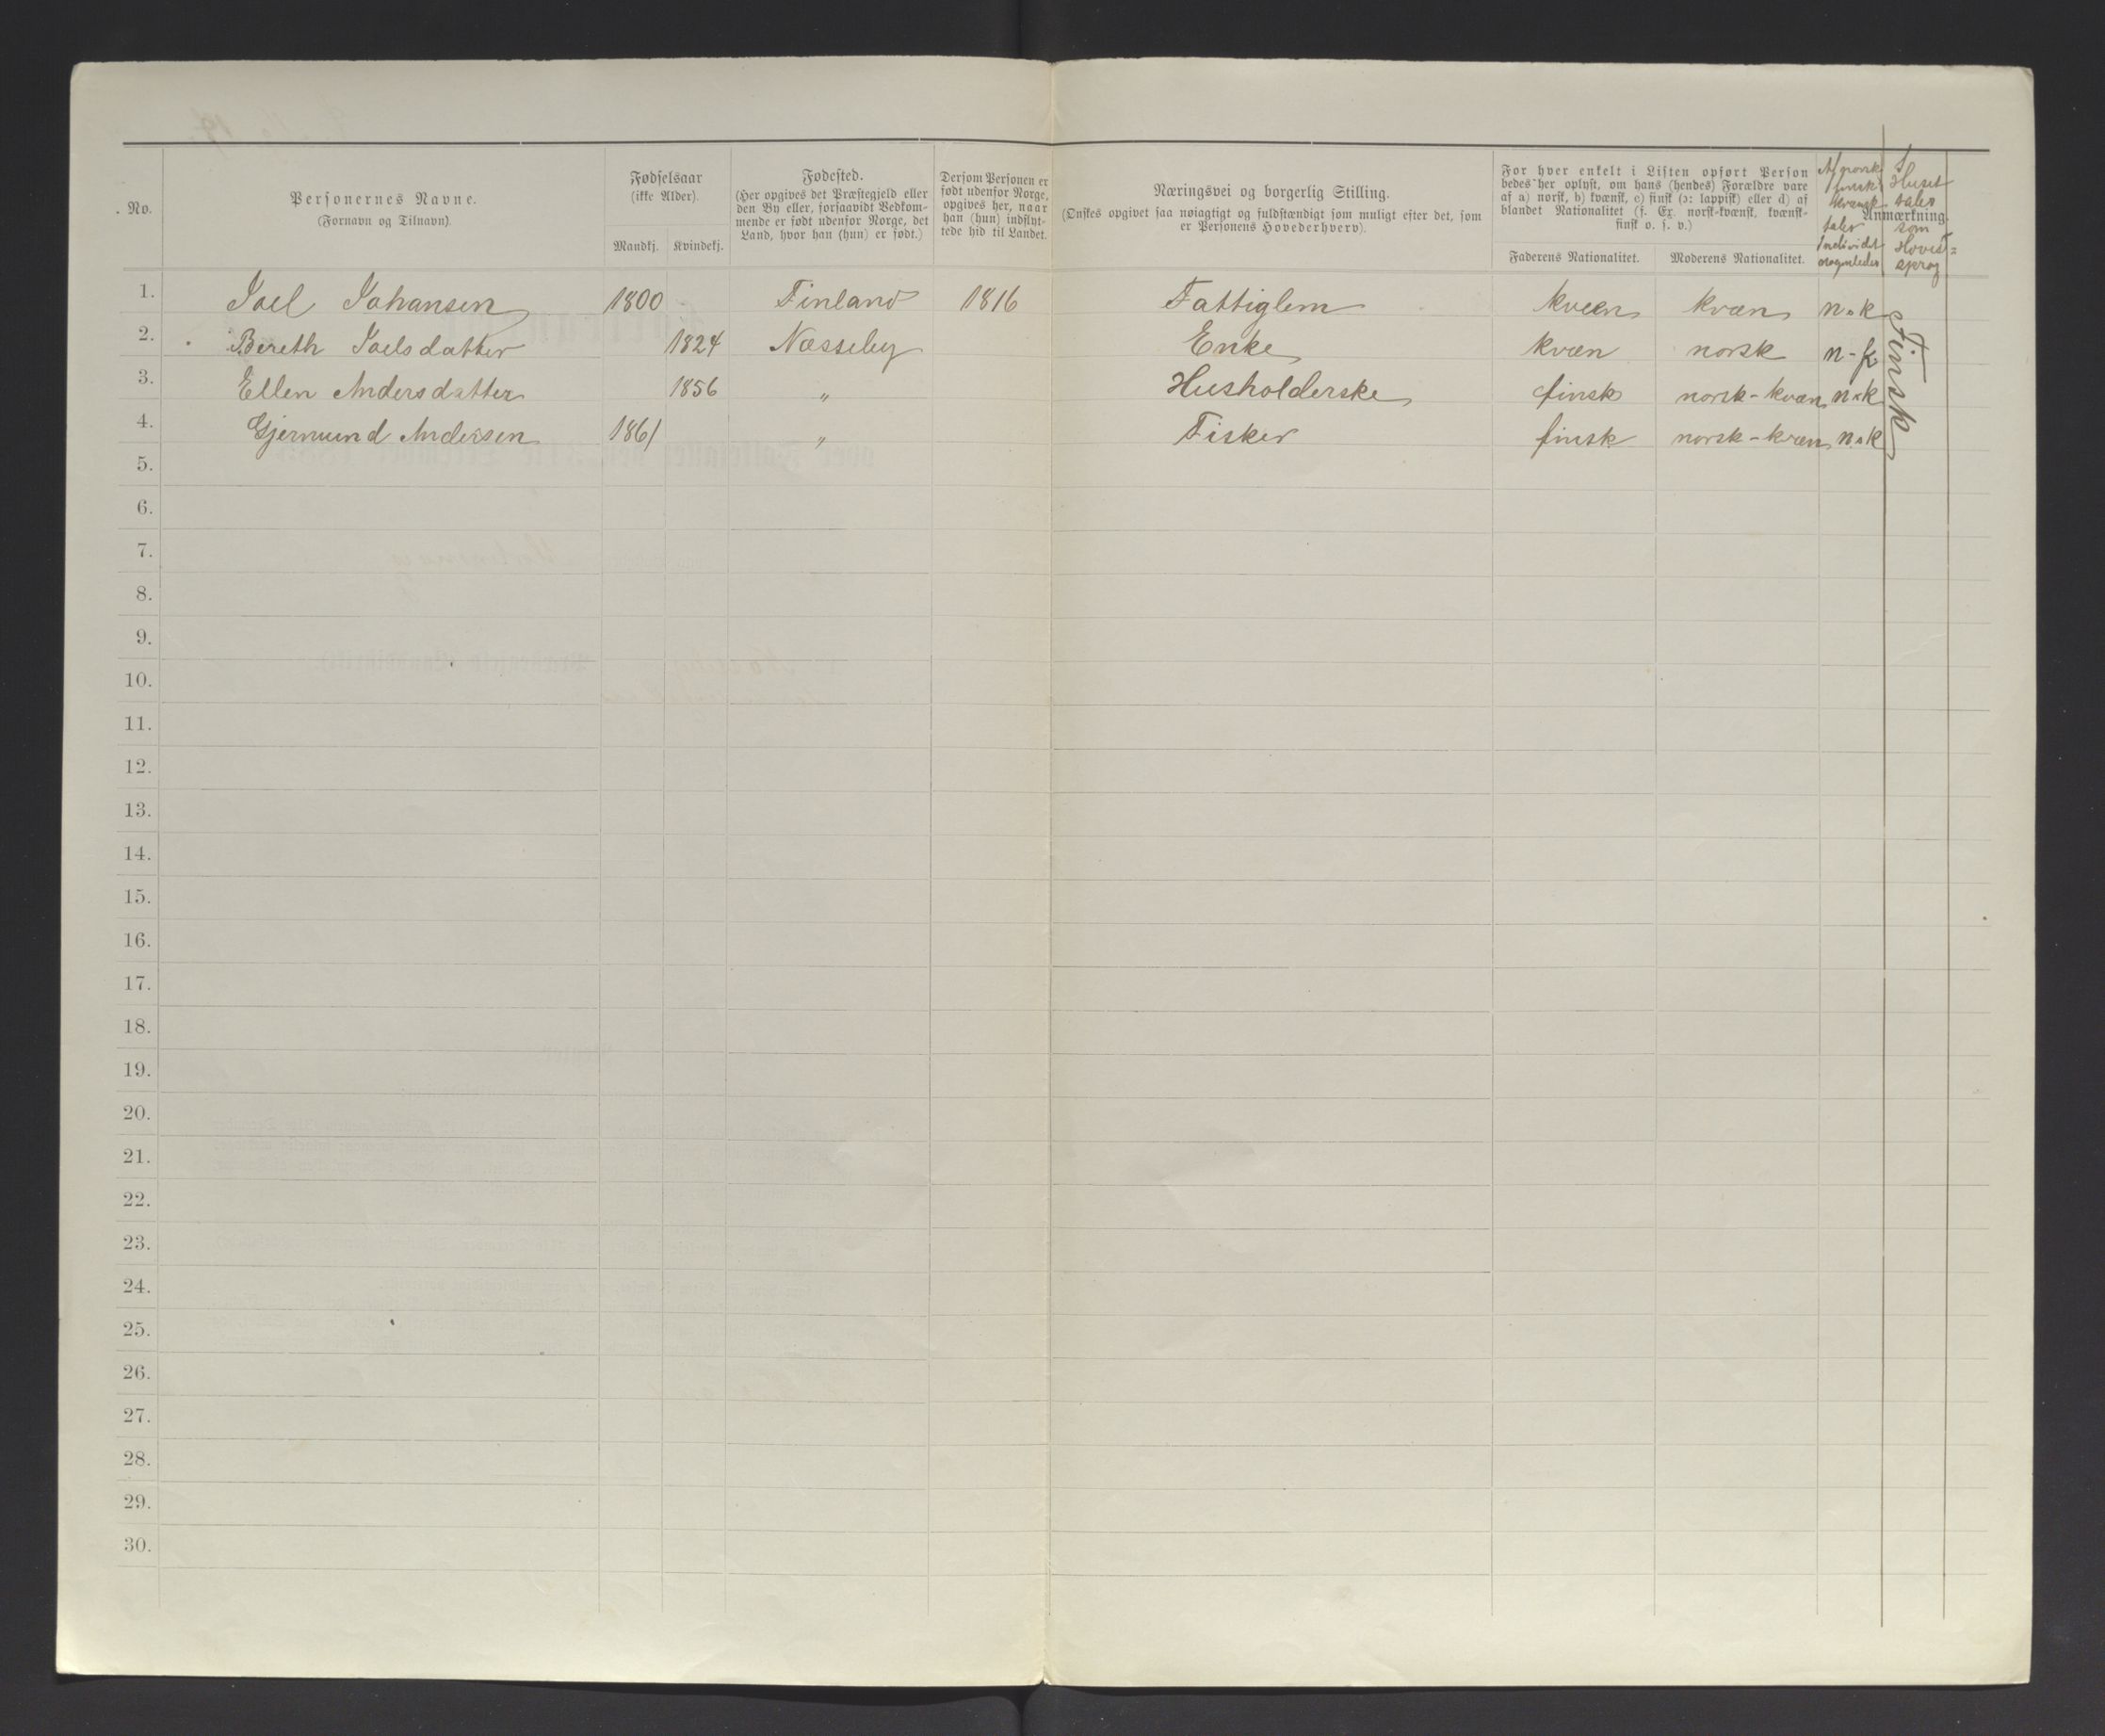 No.
Personernes Navne.
(Fornavn og Tilnavn).
Fødselsaar
(ikke Alder).
Mandkj. Kvindekj.
Fødested.
(Her opgives det Præstegjeld eller
den By eller, forsaavidt Vedkom-
mende er født udenfor Norge, det
Land, hvor han (hun) er født.)
Dersom Personen er
født udenfor Norge,
opgives her, naar
han (hun) indflyt-
tede hid til Landet.
Næringsvei og borgerlig Stilling.
(Ønskes opgivet saa nøiagtigt og fuldstændigt som muligt efter det, som
er Personens Hovederhverv).
For hver enkelt i Listen opført Person
bedes her oplyst, om hans (hendes) Forældre vare
af a) norsk, b) kvænsk, c) finsk (ɔ: lappisk) eller d) af
blandet Nationalitet (f. Ex. norsk-kvænsk, kvænsk-
finsk o. s. v.)
Faderens Nationalitet. Moderens Nationalitet.
Af norsk
finsk
kvænsk
taler
Individet
Anmærkning.
I
Huset
tales
som
Hoved-
sprog
1. Joel Johansen 1800 Finland 1816 Fattiglem kvæn kvæn n.k
2. Bereth Joelsdatter 1824 Næsseby Enke kvæn norsk n-k
3. Ellen Andersdatter 1856 " Husholderske finsk norsk-kvæn n.k
4. Gjermund Andersen 1861 " Fisker finsk norsk-kvæn n.k
Finsk
5.
6.
7.
8.
9.
10.
11.
12.
13.
14.
15.
16.
17.
18.
19.
20.
21.
22.
23.
24.
25.
26.
27.
28.
29.
30.